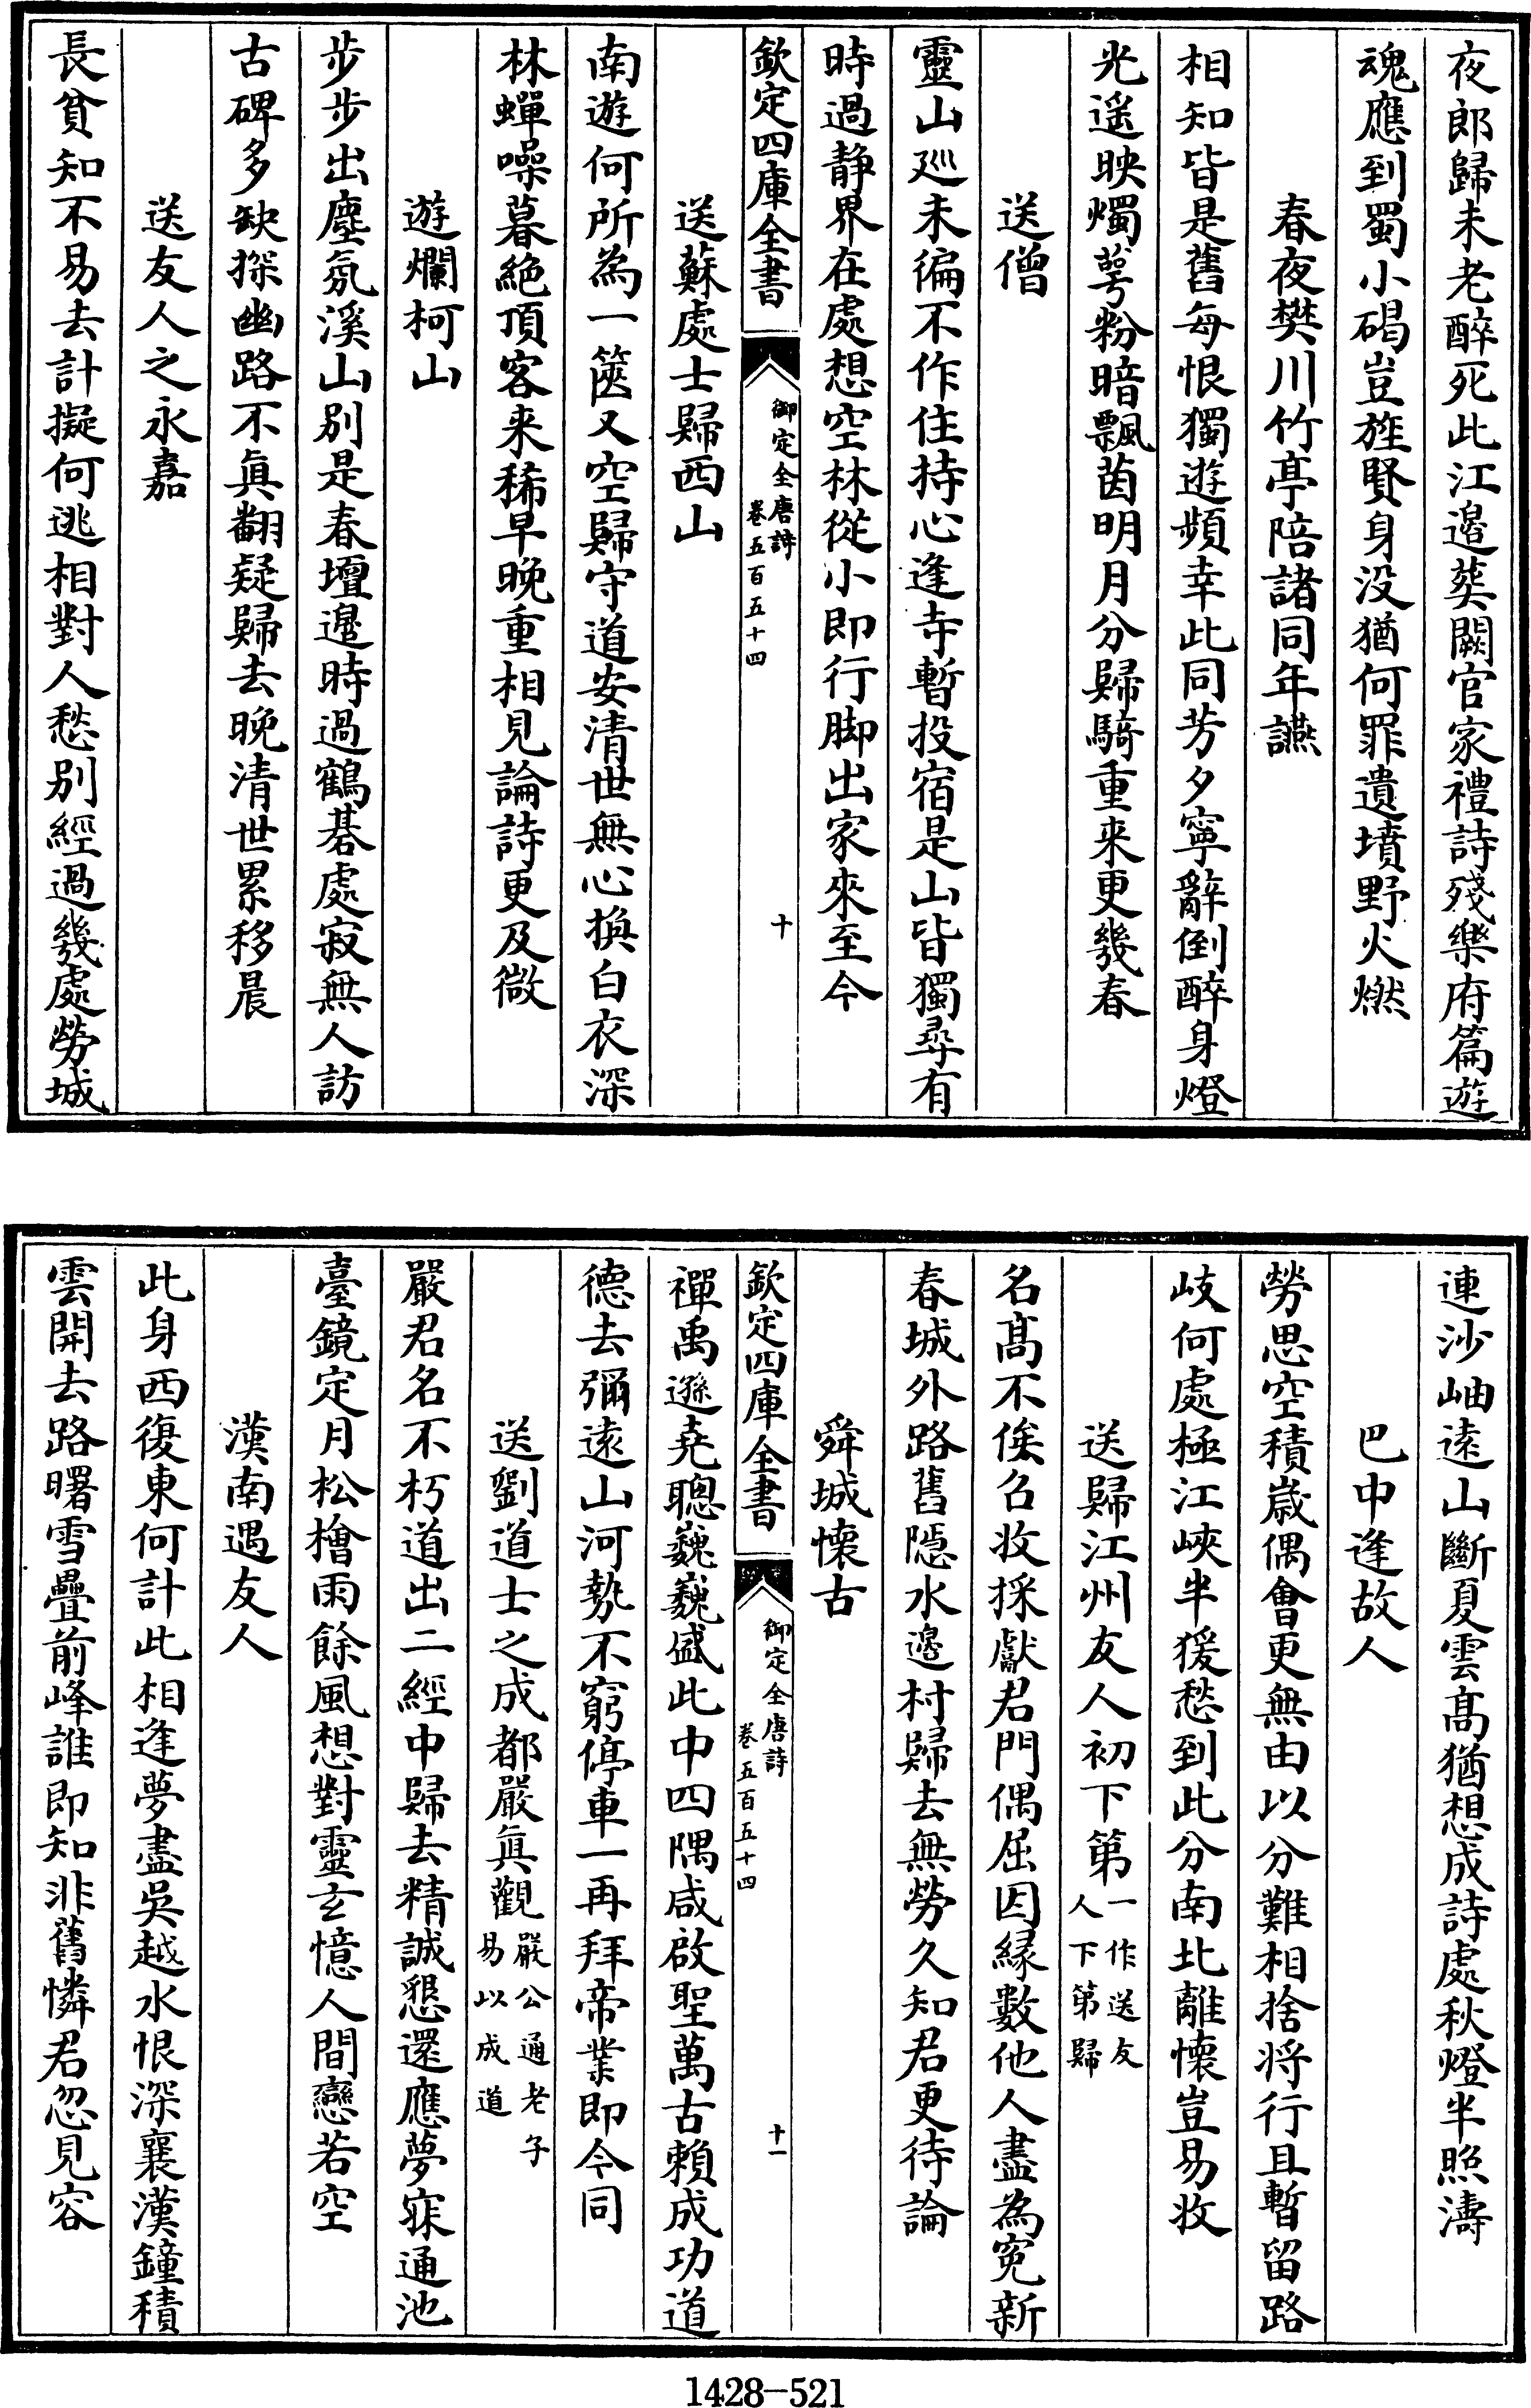 夜郎歸未老醉死此江邊葬闕官家禮詩殘樂府篇遊
魂應到蜀小碣豈旌賢身没猶何罪遺墳野火燃
春夜樊川竹亭陪諸同年讌
相知皆是舊每恨獨遊頻幸此同芳夕寧辭倒醉身燈
光遥映燭蕚粉暗飄茵明月分歸騎重来更幾春
送僧
靈山廵未徧不作住持心逢寺暫投宿是山皆獨尋有
時過静界在處想空林從小即行脚出家來至今
欽定四庫全書
御定全唐詩
卷五百五十四
十
送蘇處士歸西山
南遊何所為一篋又空歸守道安清世無心換白衣深
林蟬噪暮絶頂客来稀早晚重相見論詩更及微
遊爛柯山
步步出塵氛溪山别是春壇邉時過鶴碁處寂無人訪
古碑多缺探幽路不真翻疑歸去晚清世累移晨
送友人之永嘉
長貧知不易去計擬何逃相對人愁别經過幾處勞城
連沙岫逺山斷夏雲髙猶想成詩處秋燈半照濤
巴中逢故人
勞思空積歲偶會更無由以分難相捨将行且暫留路
岐何處極江峽半猨愁到此分南北離懷豈易收
送歸江州友人初下第
一作送友
人下第歸
名髙不俟召收採獻君門偶屈因縁數他人盡為寃新
春城外路舊隱水邉村歸去無勞久知君更待論
舜城懐古
禪禹遜堯聰巍巍盛此中四隅咸啟聖萬古賴成功道
德去彌逺山河勢不窮停車一再拜帝業即今同
送劉道士之成都嚴真觀
嚴公通老子
易以成道
嚴君名不朽道出二經中歸去精誠懇還應夢寐通池
臺鏡定月松檜雨餘風想對靈玄憶人間戀若空
漢南遇友人
此身西復東何計此相逢夢盡吳越水恨深襄漢鐘積
雲開去路曙雪疊前峰誰即知非舊憐君忽見容
1428—521